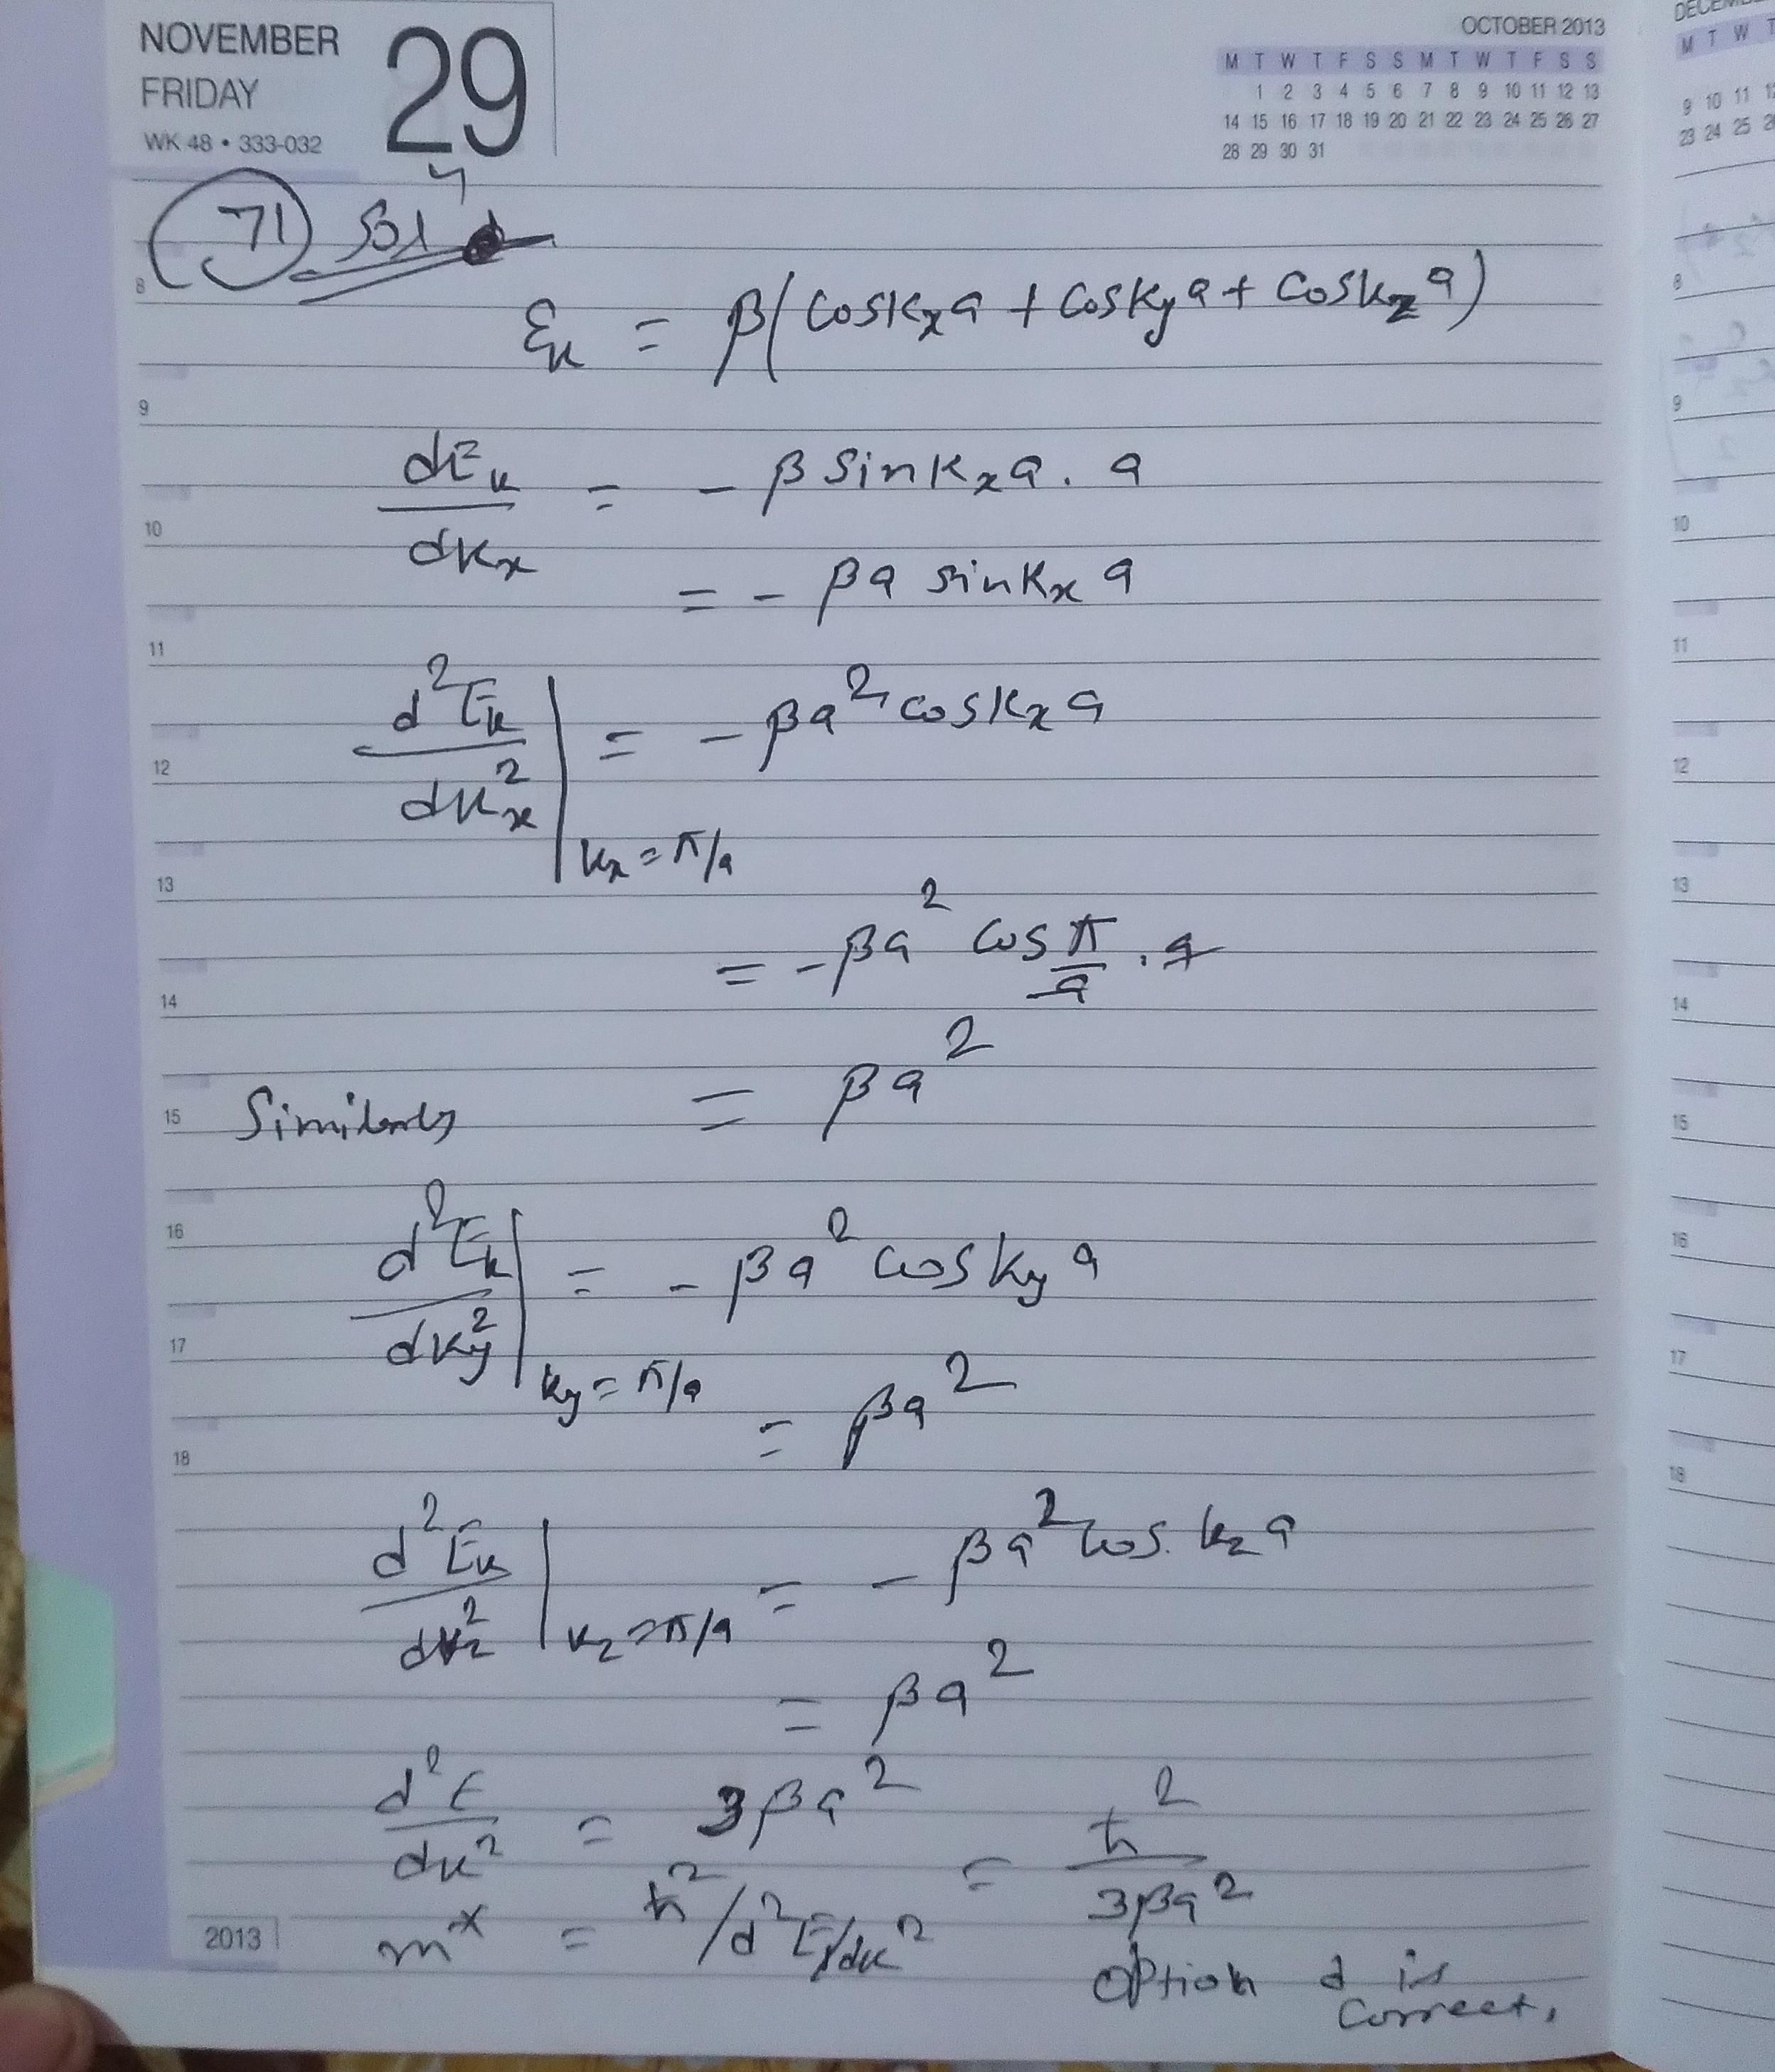 NOVEMBER
FRIDAY
WK 48 • 333-032
29
OCTOBER 2013
M T W T F S S M T W T F S S
1 2 3 4 5 6 7 8 9 10 11 12 13
14 15 16 17 18 19 20 21 22 23 24 25 26 27
28 29 30 31
M T W T
9 10 11
23 24 25
71 Sol
8
εk = β(cos kx a + cos ky a + cos kz a)
9
dEk/dkx = - β sin kx a . a
10
= - βa sin kx a
11
d²Ek/dkx² | kx = π/a = - βa² cos kx a
12
13
= - βa² cos π/a . a
14
= βa²
15 Similarly
16
d²Ek/dky² | ky = π/a = - βa² cos ky a
17
= βa²
18
d²Ek/dkz² | kz = π/a = - βa² cos. kz a
= βa²
d²E/dk² = 3βa²
m* = ħ²/d²E/dk² = ħ²/3βa²
2013
option d is
correct.
8
9
10
11
12
13
14
15
16
17
18